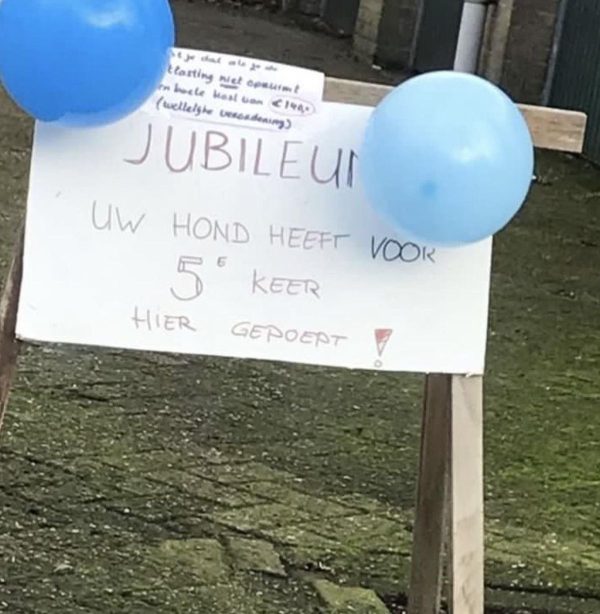 je dat als je de
niet opruimt
boete kost van € 140,-
(wettelijke verordening)
JUBILEU
UW HOND HEEFT VOOR
5e KEER
HIER GEPOEPT !